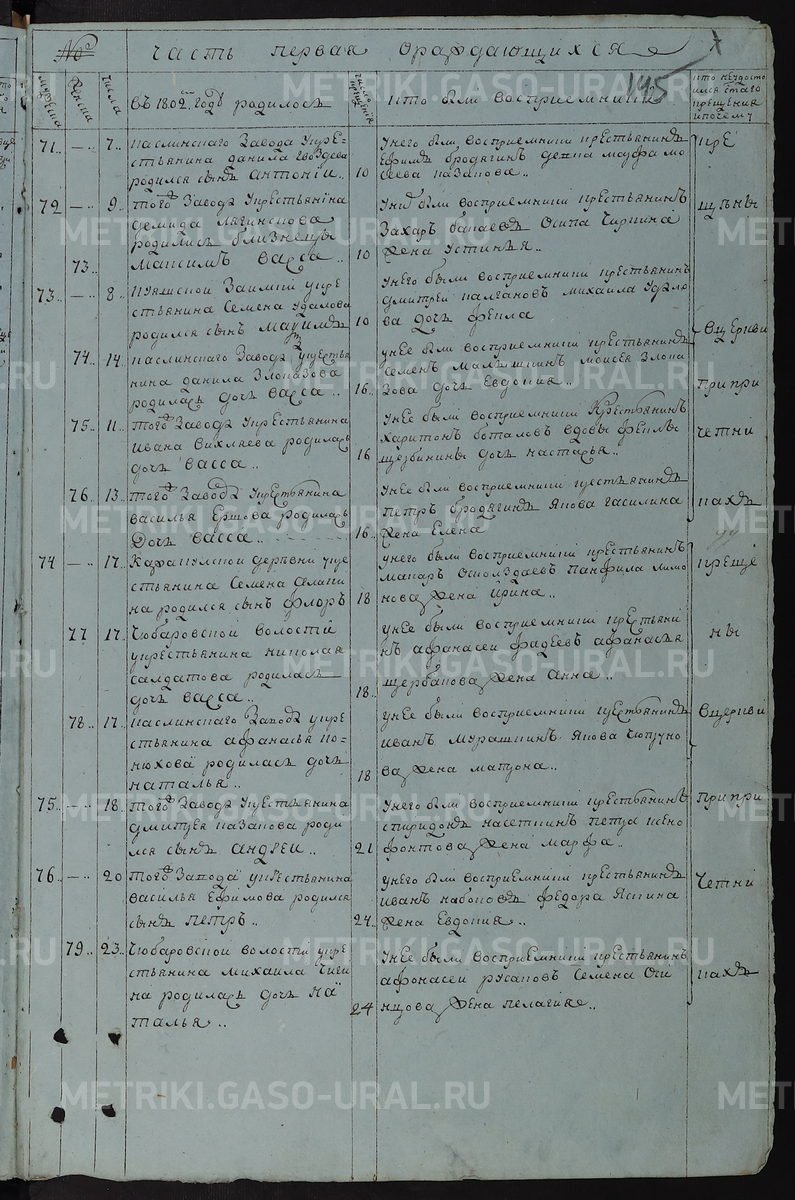 №
часть первая ораждающихся
145
мужеска
женска
числа
въ 1802 годе родилось
число крещения
кто были восприемники
кто неудосто
ился стаго
крещения
и почему
71.. — .. 7..
каслинскаго Завода укре=
стьянина данила Гвоздева
родился сынъ Антоніи..
10
унего были восприемники крестьянинъ
Ефимъ бродягинъ
сеева казакова..
72 — .. 9..
тогожъ Завода укрестьянина
демида
родились близнецы
73..
максимъ васса..
10
унихъ были восприемники крестьянинъ
Захаръ Осипа Чиркина
жена Устинья..
73.. — .. 8..
Заимки укре
стьянина Семена Удалова
родился сынъ
10
унего были восприемники крестьянинъ
дмитреи калгановъ михаила Удало
ва дочь фекла
74.. 14..
каслинскаго Завода укрестья
нина данила Злоказова
родилась дочь васса..
16..
унее были восприемники крестьянинъ
Семенъ моисея Злока
зова дочь Евдокия..
75.. 11..
тогожъ Завода укрестьянина
Ивана Вихляева родилась
дочь васса..
16
унее были восприемники крестьянинъ
харитонъ боталовъ вдовы феклы
щербинины дочь настасья..
76.. 13..
тогожъ Завода укрестьянина
василья Ершова родилась
дочь васса..
16..
унее были восприемники крестьянинъ
петръ бродягинъ якова гасилина
жена Елена
74 — .. 17..
деревни укре
стьянина Семена
на родился сынъ флоръ
18
унего были восприемники крестьянинъ
макаръ панфила лимо
нова жена ирина..
77 17..
Чюбаровской волости
укрестьянина николая
салдатова родилась
дочь васса..
18..
унее были восприемники крестьяни
нъ афанасеи фадеевъ афанасья
щербакова жена Анна..
78.. 17..
каслинскаго Завода укре
стьянина афанасья ко=
нюхова родилась дочь
наталья..
18
унее были восприемники крестьянинъ
иванъ мурашкинъ якова
ва жена матрона..
75.. — .. 18..
тогожъ Завода укрестьянина
дмитрея казакова роди
лся сынъ андреи..
21
унего были восприемники крестьянинъ
спиридонъ насеткинъ петра ксено
фонтова жена марфа..
76.. — .. 20
тогожъ Завода укрестьянина
василья Ефимова родился
сынъ петръ..
24..
унего были восприемники крестьянинъ
иванъ набоковъ федора Яскина
жена Евдокия..
79.. 23..
Чюбаровской волости укре
стьянина михаила Чиги
на родилась дочь на
талья..
24
унее были восприемники крестьянинъ
афонасеи русаковъ Семена Оги
нцова жена пелагия..
кре
щены
вцеркви
при при
четни
кахъ
креще
ны
вцеркви
при при
четни
кахъ
METRIKI.GASO-URAL.RU